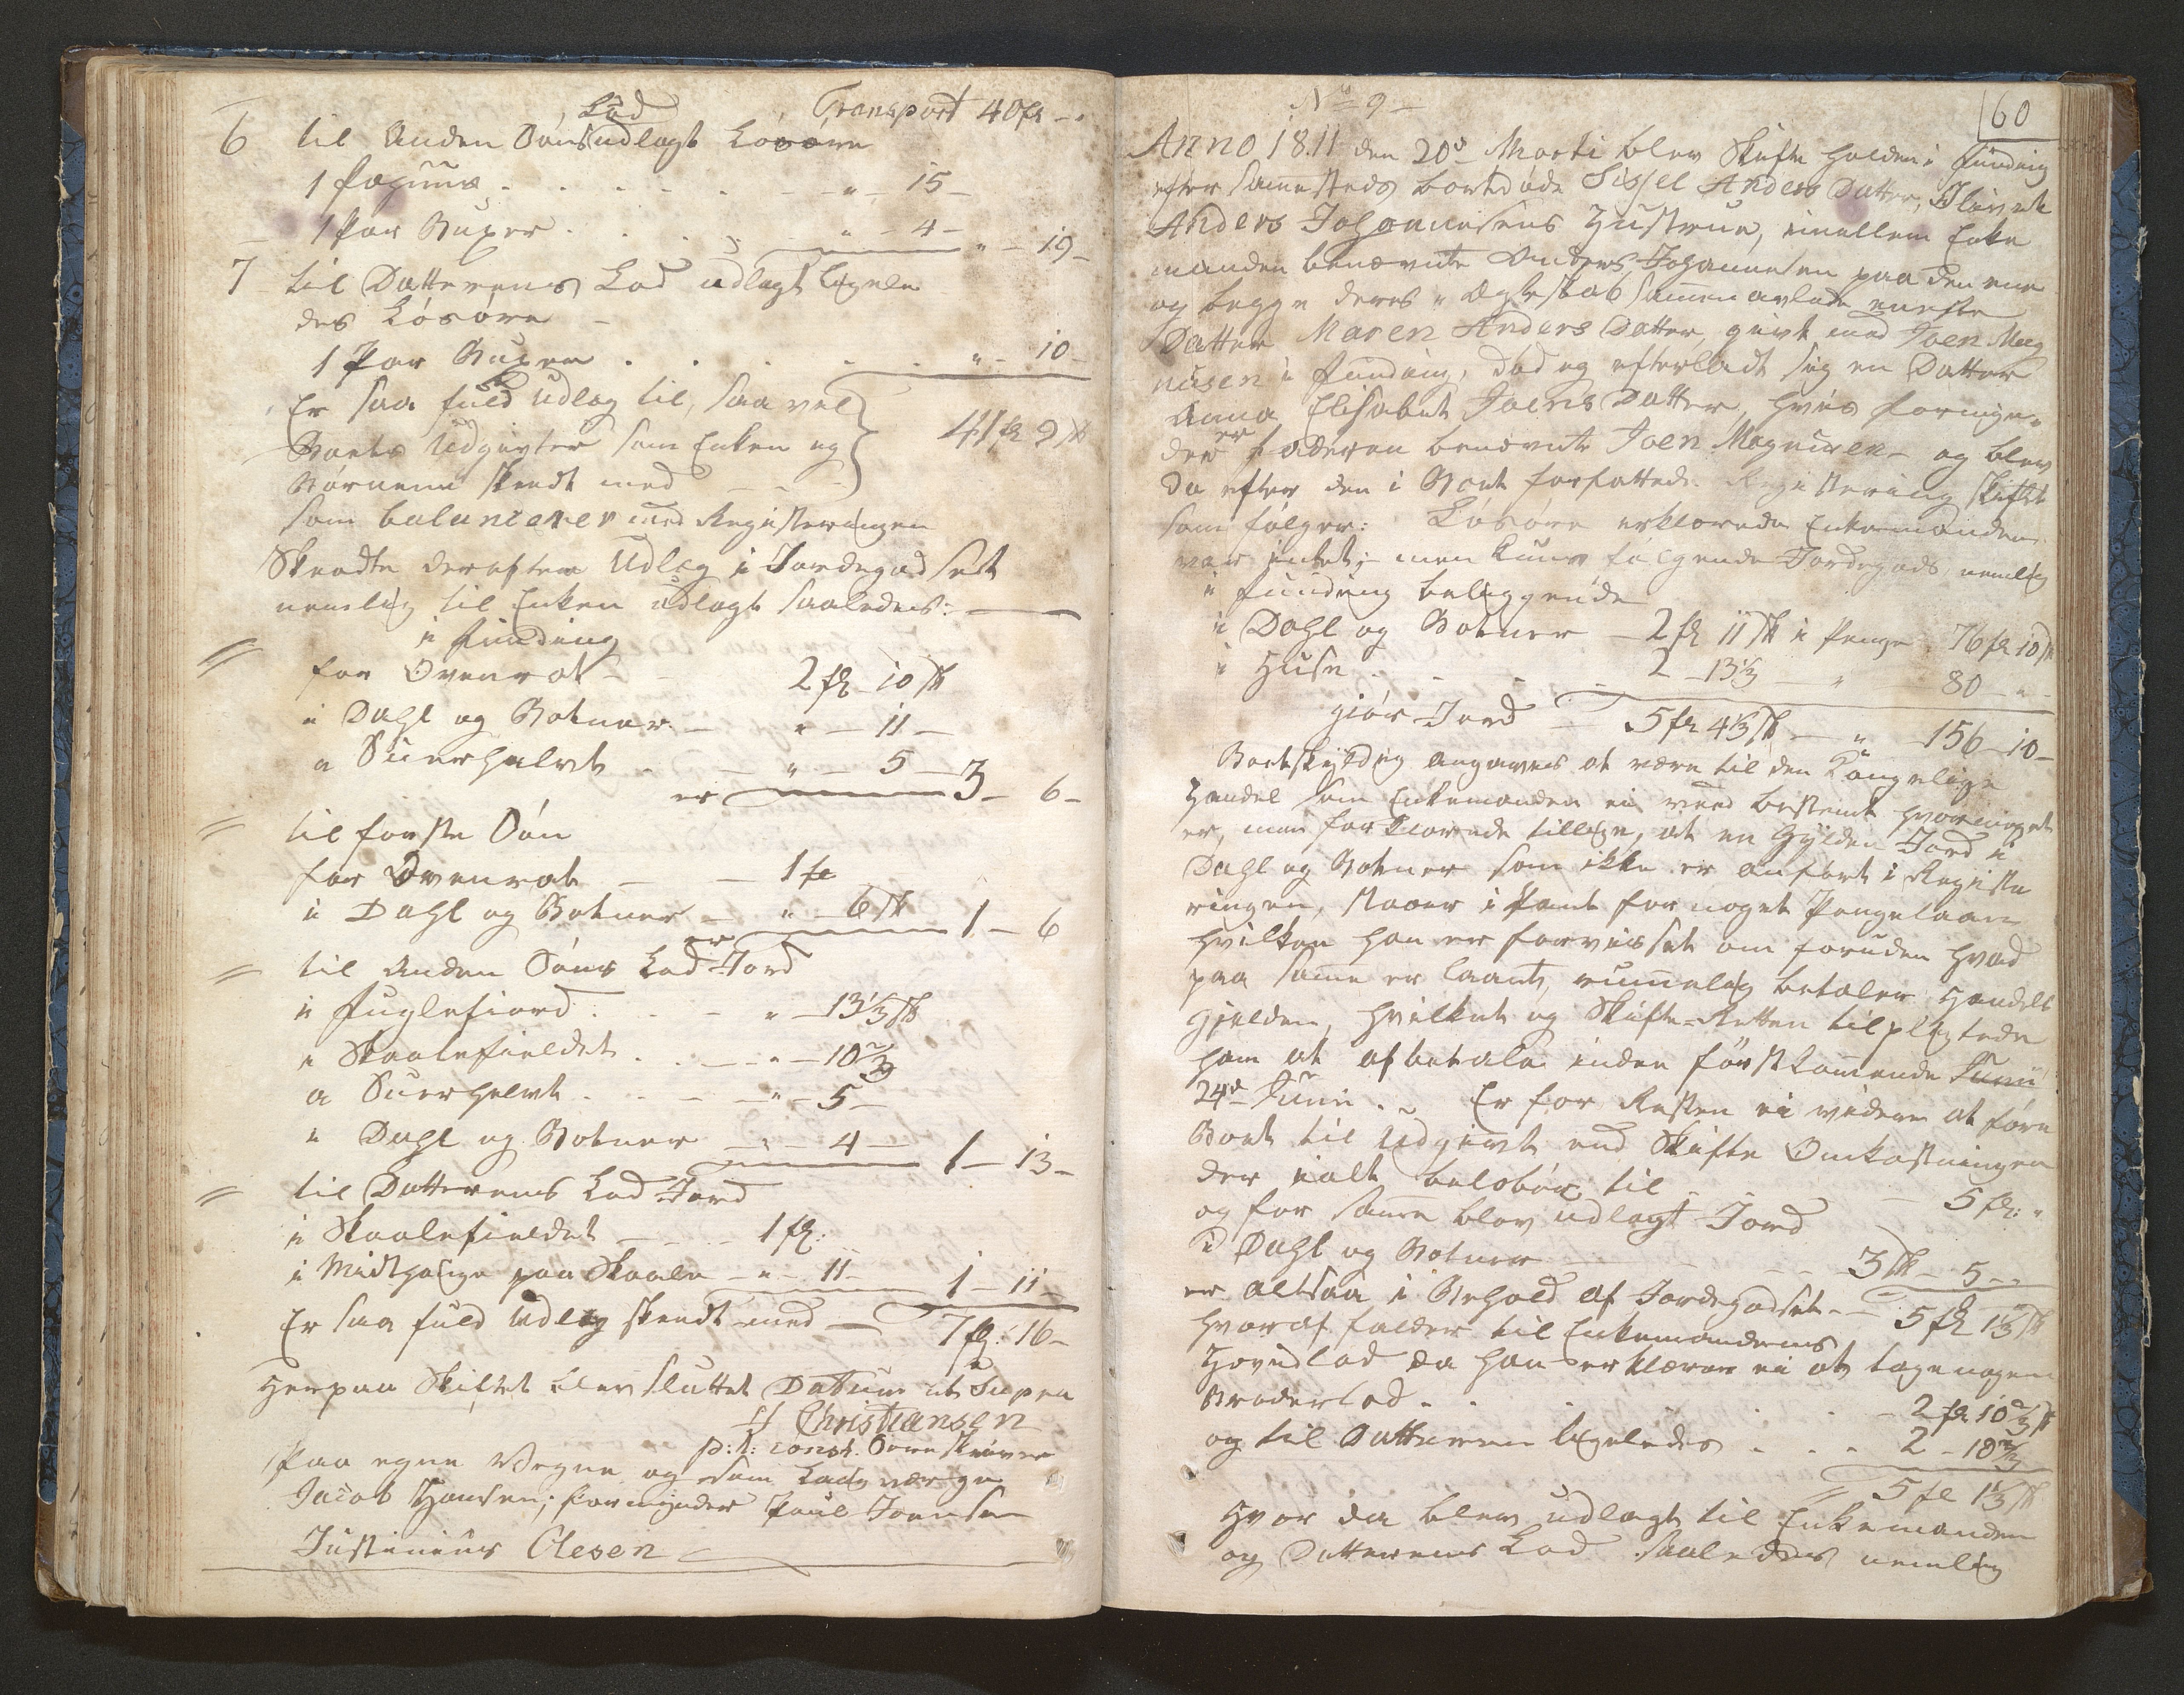 Lod Transport 40 fl - "
6 til Anden Søns udlagt Løsøre
1 Pæhuus . . . . . . " - 15 -
1 Par Buxer . . . . " - 4 - " - 19 -
7 til Datterens Lod udlagt ligele
des Løsøre -
1 Par Buxer . . . . . " - 10 -
Er saa fuld Udlæg til, saavel
Boets Udgivter som Enken og 41 fl 9 sk
Børnene skeedt med
som balancerer med Registeringen
Skeedte derefter Udlæg i Jordegodset
nemlig til Enken udlagt saaledes: -
i Funding
for Ovenrat - 2 fl - 10 sk
i Dahl og Botner - " - 11 -
a Suerhalvt . - " - 5 - 3 - 6 -
er
til første Søn
for Ovenrat - - 1 fl
i Dahl og Botner - " - 6 sk 1 - 6
er
til Anden Søns Lod Jord
i Fuglefiord . . - " - 13 1/3 sk
i Skaalefieldet . . - " - 10 2/3
a Suerhelvt . . - " - 5 -
i Dahl og Botner - " - 4 - 1 - 13 -
til Datterens Lod Jord
i Skaalefieldet - - 1 fl:
i Midthauge paa Skaale - " - 11 - 1 - 11 -
Er saa fuld Udlæg skeedt med - 7 fl: 16 -
Herpaa Skiftet blev sluttet Datum ut Supra
H Christiansen
p: t: const. Sorenskriver
Paa egne Vegne og som Laugværge
Jacob Hansen; formynder Poul Joensen
Justinius Olesen
No 9 -
60
Anno 1811 den 20d Marti blev Skifte holden i Funding
efter sammesteds bortdøde Sissel Anders Datter,
Anders Johannesens Hustrue, imellem Enke
manden benævnte Anders Johannesen paa den ene
og begge deres i Ægteskab sammenavlede eneste
Datter Maren Anders Datter, givt med Joen Mag
nusen i Funding, død og efterladt sig en Datter
Anna Elisabet Joens Datter, hvis formyn-
der er Faderen benævnte Joen Magnusen - og blev
da efter den i Boet forfattede Registering skiftet
som følger: Løsøre erklærede Enkemanden
var intet; men kuns følgende Jordegods nemlig
i Funding beliggende
i Dahl og Botner - 2 fl 11 sk i Penge 76 fl 10 sk
i Huse . . . . 2 - 13 1/3 - " 80 - " -
giør Jord - 5 fl 4 1/3 sk - " - 156 - 10 -
Bortskyldig angaves at være til den Kongelige
Handel som Enkemanden ei veed bestemt hvormeget
er, men forklarede tillige, at en Gylden Jord i
Dahl og Botner som ikke er anført i Registe
ringen, staaer i Pant for noget Pengelaan
hvilken han er forvisset om foruden hvad
paa samme er laant, rummelig betaler Handels
Gjelden, hvilket og Skifte-Retten tilpligtede
ham at afbetale inden førstkommende Junii
24d Junii . - Er for Resten ei videre at føre
Boet til Udgivt end Skifte Omkostningen
der ialt beløber til - 5 fl: "
og for samme blev udlagt Jord
i Dahl og Botner - - - 3 sk - 5 - "
er altsaa i Behold af Jordegodset - - 5 fl 1 1/3 sk
hvoraf falder til Enkemandens
Hovedlod da han erklærer ei at tage nogen
Broderlod . . . . . 2 fl 10 2/3 sk
og til Datteren ligeledes . . . 2 - 10 2/3
5 fl 1 1/3 sk
Hvor da blev udlagt til Enkemanden
og Datterens Lod saaledes nemlig